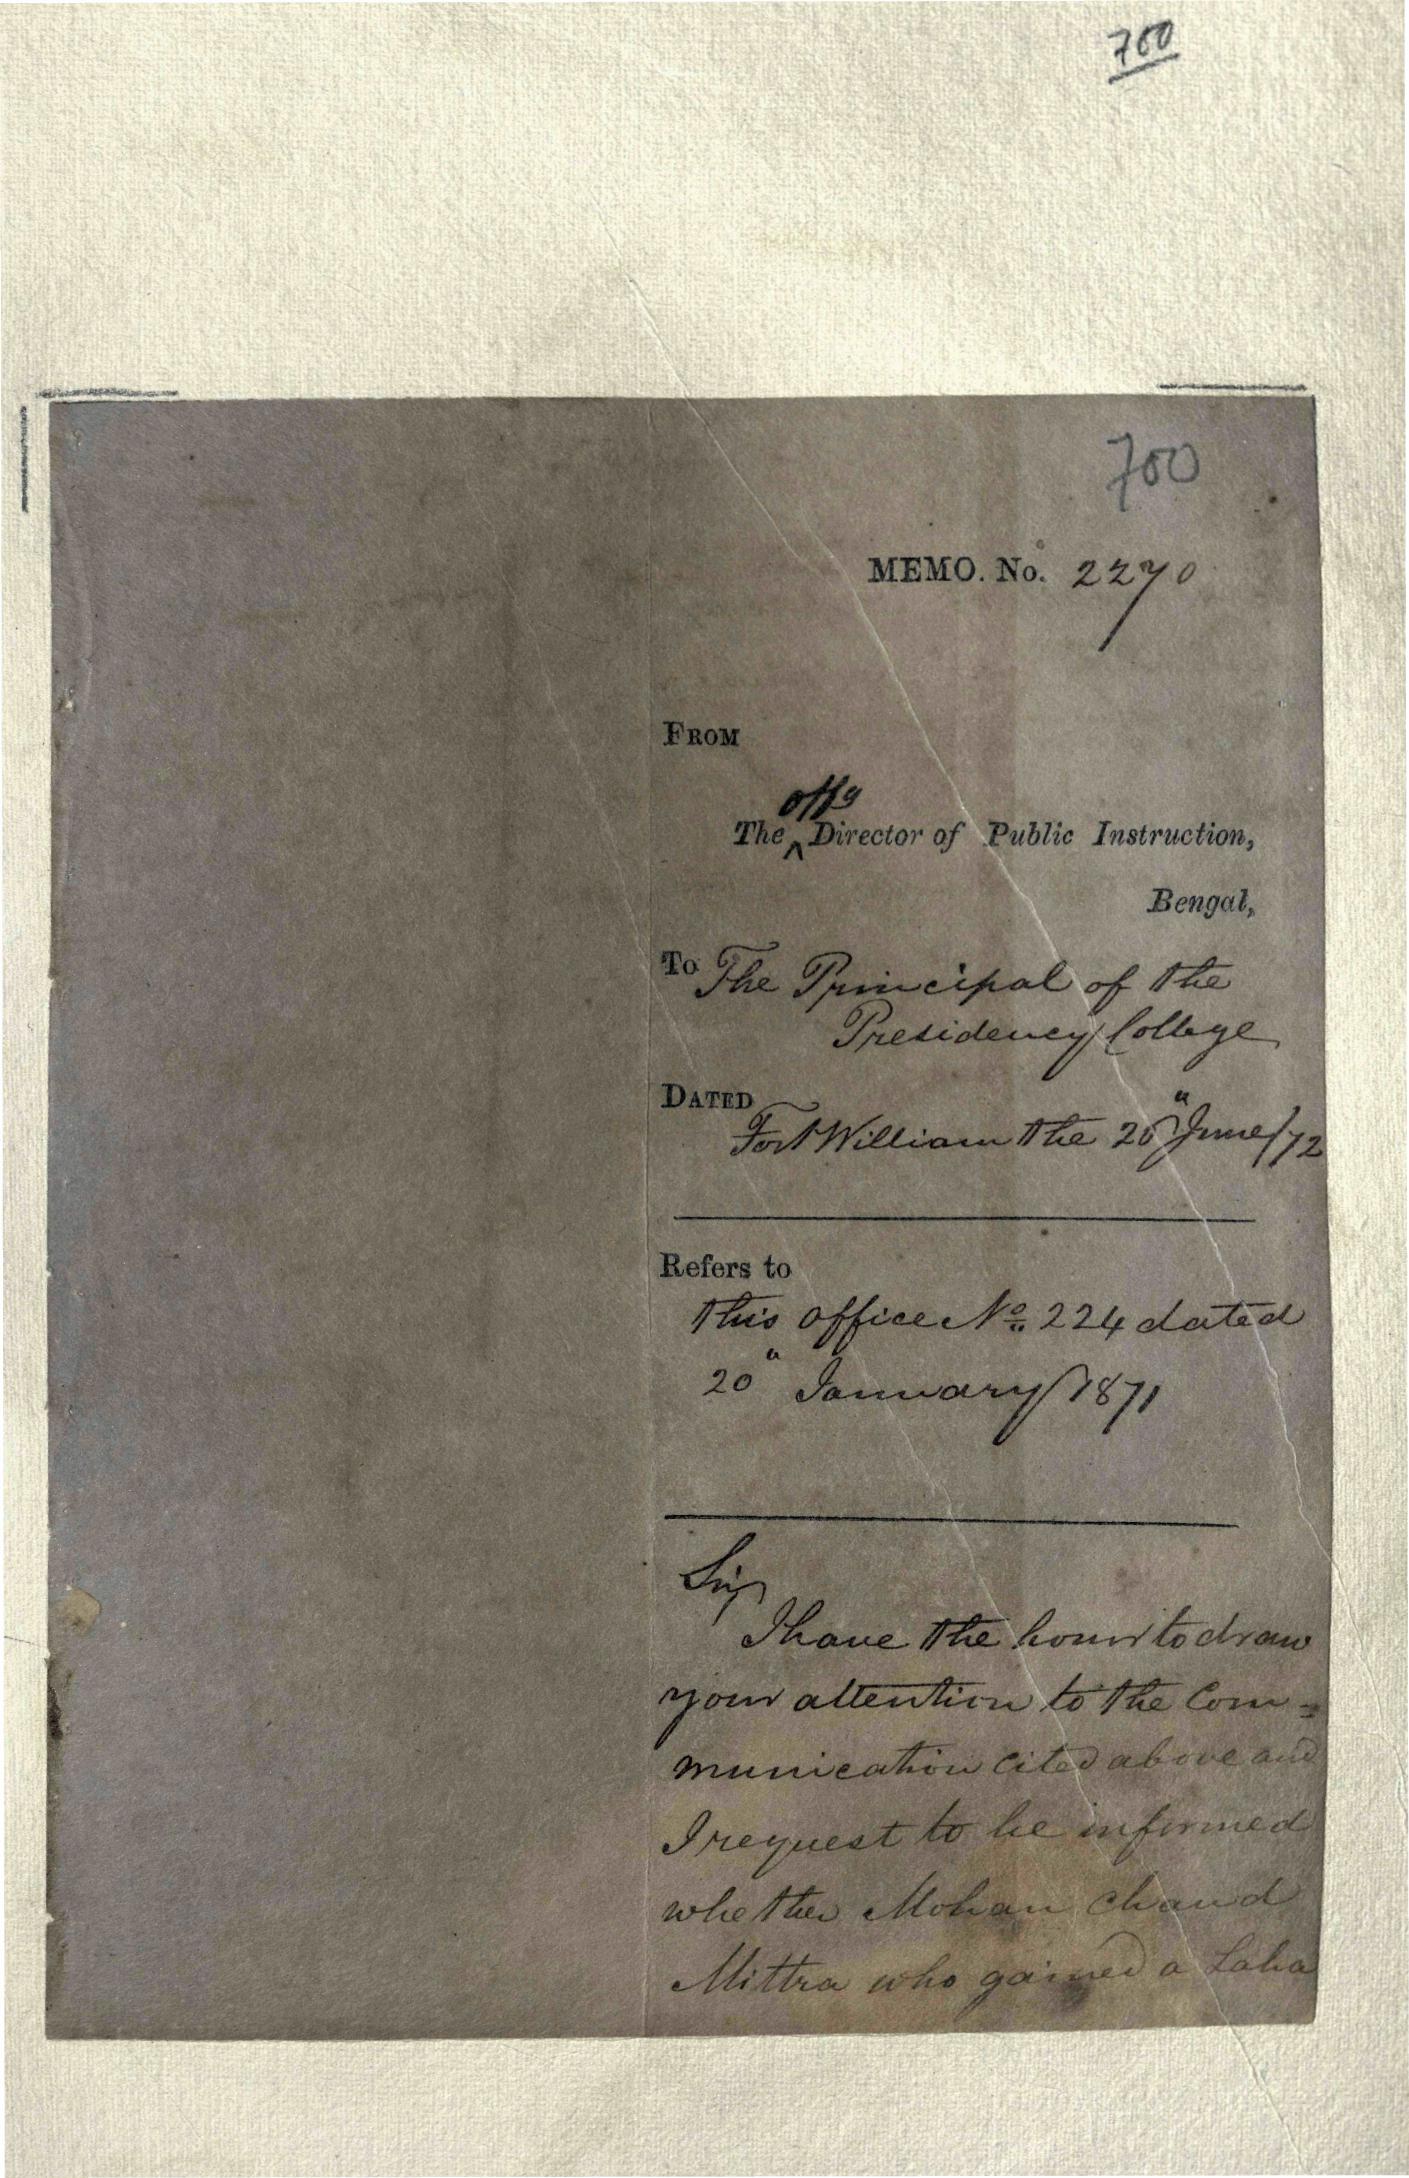 700
700
MEMO. No. 2270
FROM
offg
The ^ Director of Public Instruction,
Bengal,
To The Principal of the
Presidency College
DATED
Fort William the 20" June/72
Refers to
this office No. 224 dated
20" January 1871
Sir,
I have the honor to draw
your attention to the Com=
munication cited above and
I request to be informed
whether Mohan Chand
Mittra who gained a Laha